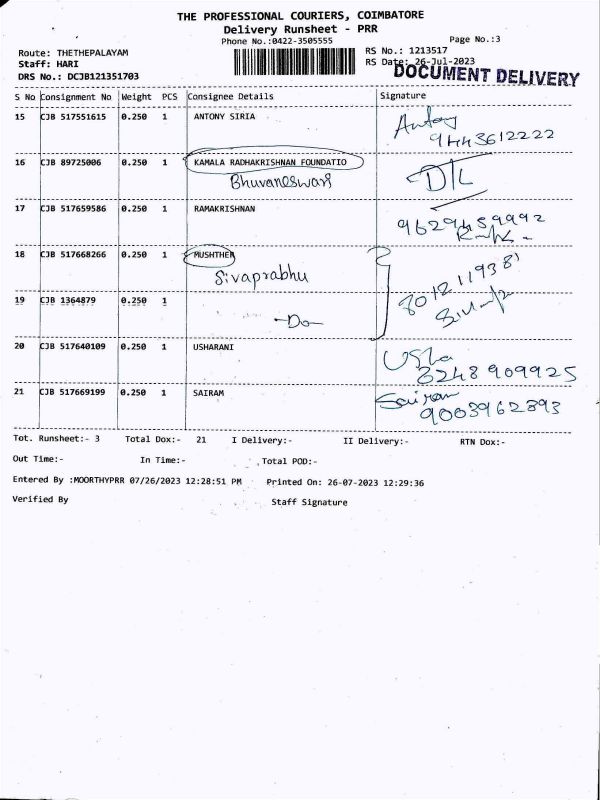 THE PROFESSIONAL COURIERS, COIMBATORE
Delivery Runsheet - PRR
Phone No.:0422-3505555
Page No.:3
Route: THETHEPALAYAM
RS No.: 1213517
Staff: HARI
RS Date: 26-Jul-2023
DRS No.: DCJB121351703
DOCUMENT DELIVERY
S No Consignment No Weight PCS Consignee Details Signature
15 CJB 517551615 0.250 1 ANTONY SIRIA Antony
9443612222
16 CJB 89725006 0.250 1 KAMALA RADHAKRISHNAN FOUNDATIO
Bhuvaneswari D/L
17 CJB 517659586 0.250 1 RAMAKRISHNAN 9629459992
18 CJB 517668266 0.250 1 MUSHTHER
Sivaprabhu 8012119381
19 CJB 1364879 0.250 1
-Do-
20 CJB 517640109 0.250 1 USHARANI Usha
8248909925
21 CJB 517669199 0.250 1 SAIRAM Sairam
9003962893
Tot. Runsheet:- 3 Total Dox:- 21 I Delivery:- II Delivery:- RTN Dox:-
Out Time:- In Time:- Total POD:-
Entered By :MOORTHYPRR 07/26/2023 12:28:51 PM Printed On: 26-07-2023 12:29:36
Verified By Staff Signature